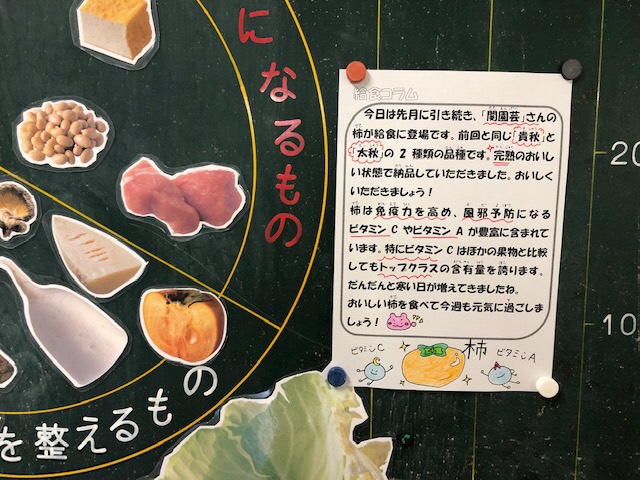 になるもの
を整えるもの
給食コラム
今日は先月に引き続き、「関園芸」さんの
柿が給食に登場です。前回と同じ「貴秋」と
「太秋」の2種類の品種です。完熟のおいし
い状態で納品していただきました。おいしく
いただきましょう！
柿は免疫力を高め、風邪予防になる
ビタミンCやビタミンAが豊富に含まれて
います。特にビタミンCはほかの果物と比較
してもトップクラスの含有量を誇ります。
だんだんと寒い日が増えてきましたね。
おいしい柿を食べて今週も元気に過ごしま
しょう！
ビタミンC
柿
ビタミンA
20
10